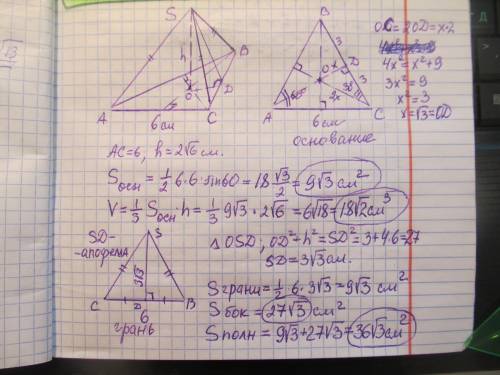 S
h
B
O
D
A
C
6 см
B
3
O
x
D
3
2x
30
A
C
6 см
основание
OC=2OD=x·2
4x²=x²+9
3x²=9
x²=3
x=√3=OD
AC=6, h=2√6 см.
Sосн = 1/2 6·6·sin60=18 √3/2 = 9√3 см²
V=1/3 Sосн·h = 1/3 9√3 · 2√6 =6√18=18√2 см³
SD-
-апофема
S
3√3
C
D
B
6
грань
△OSD, OD²+h²=SD²=3+4·6=27
SD=3√3 см.
Sграни=1/2·6·3√3=9√3 см²
Sбок=27√3 см²
Sполн=9√3+27√3=36√3 см²